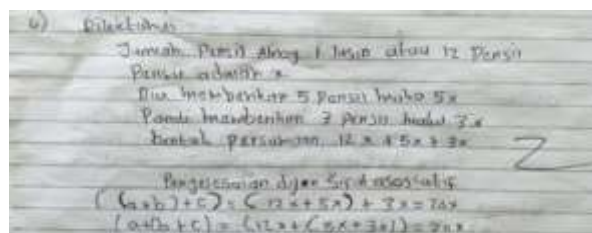 6) Diketahui
Jumlah Pensil Abang 1 lusin atau 12 Pensil
Pensil adalah x
Dia memberikan 5 Pensil maka 5x
Pandu memberikan 3 Pensil maka 3x
bentuk persamaan 12x + 5x + 3x
2
Penyelesaian dgn Sifat asosiatif
((a+b)+c) = (12x+5x) + 3x = 20x
(a+(b+c) = (12x+(5x+3x)) = 20x